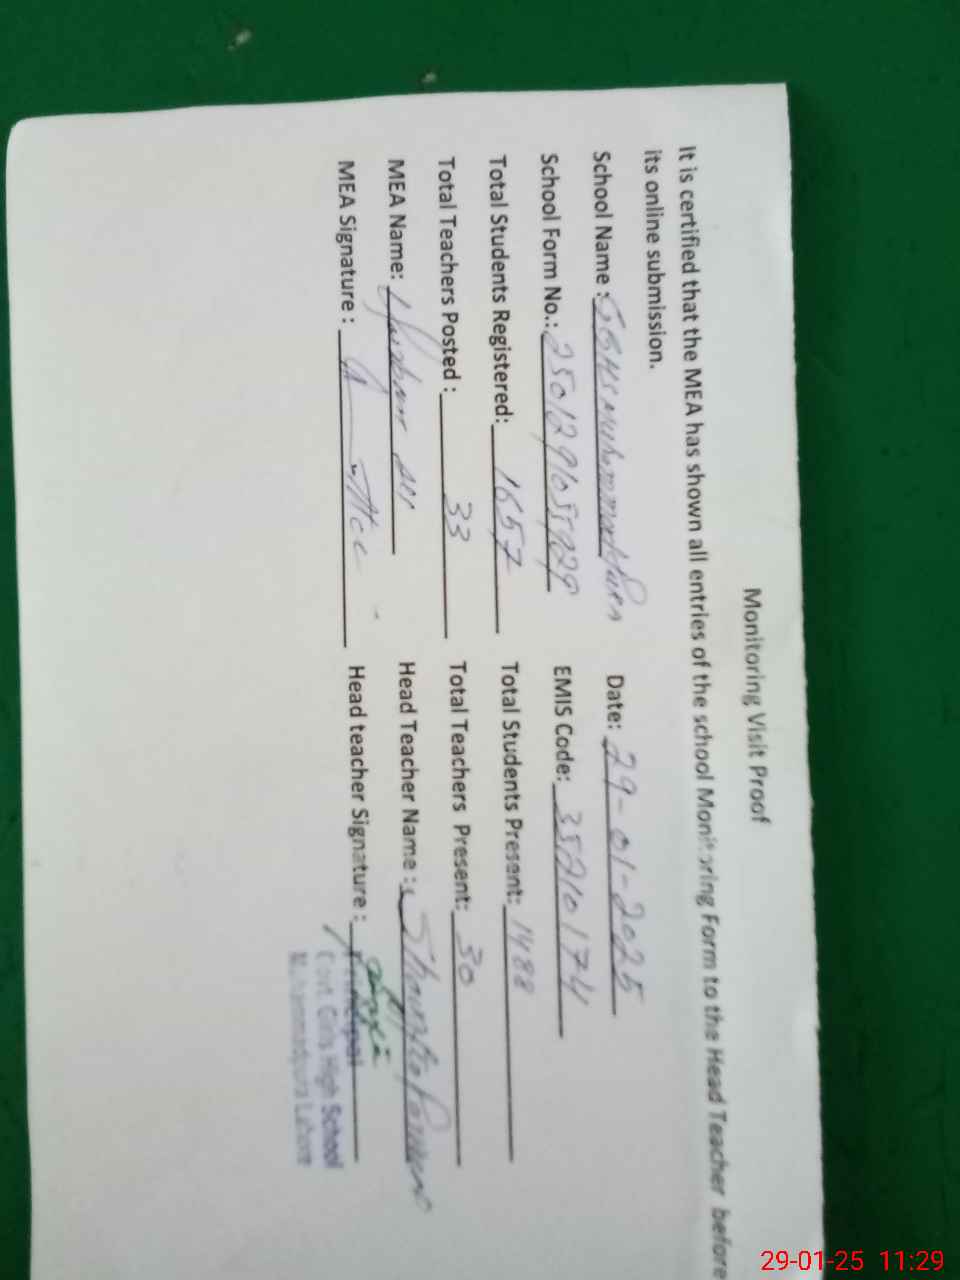 Monitoring Visit Proof
It is certified that the MEA has shown all entries of the school Monitoring Form to the Head Teacher before
its online submission.
School Name : GGHS Muhammadpura Date: 29-01-2025
School Form No.: EMIS Code: 35210174
Total Students Registered: 1657 Total Students Present: 1488
Total Teachers Posted : 33 Total Teachers Present: 30
MEA Name: Head Teacher Name :
MEA Signature : Head teacher Signature :
Principal
Govt. Girls High School
Muhammadpura Lahore
29-01-25 11:29